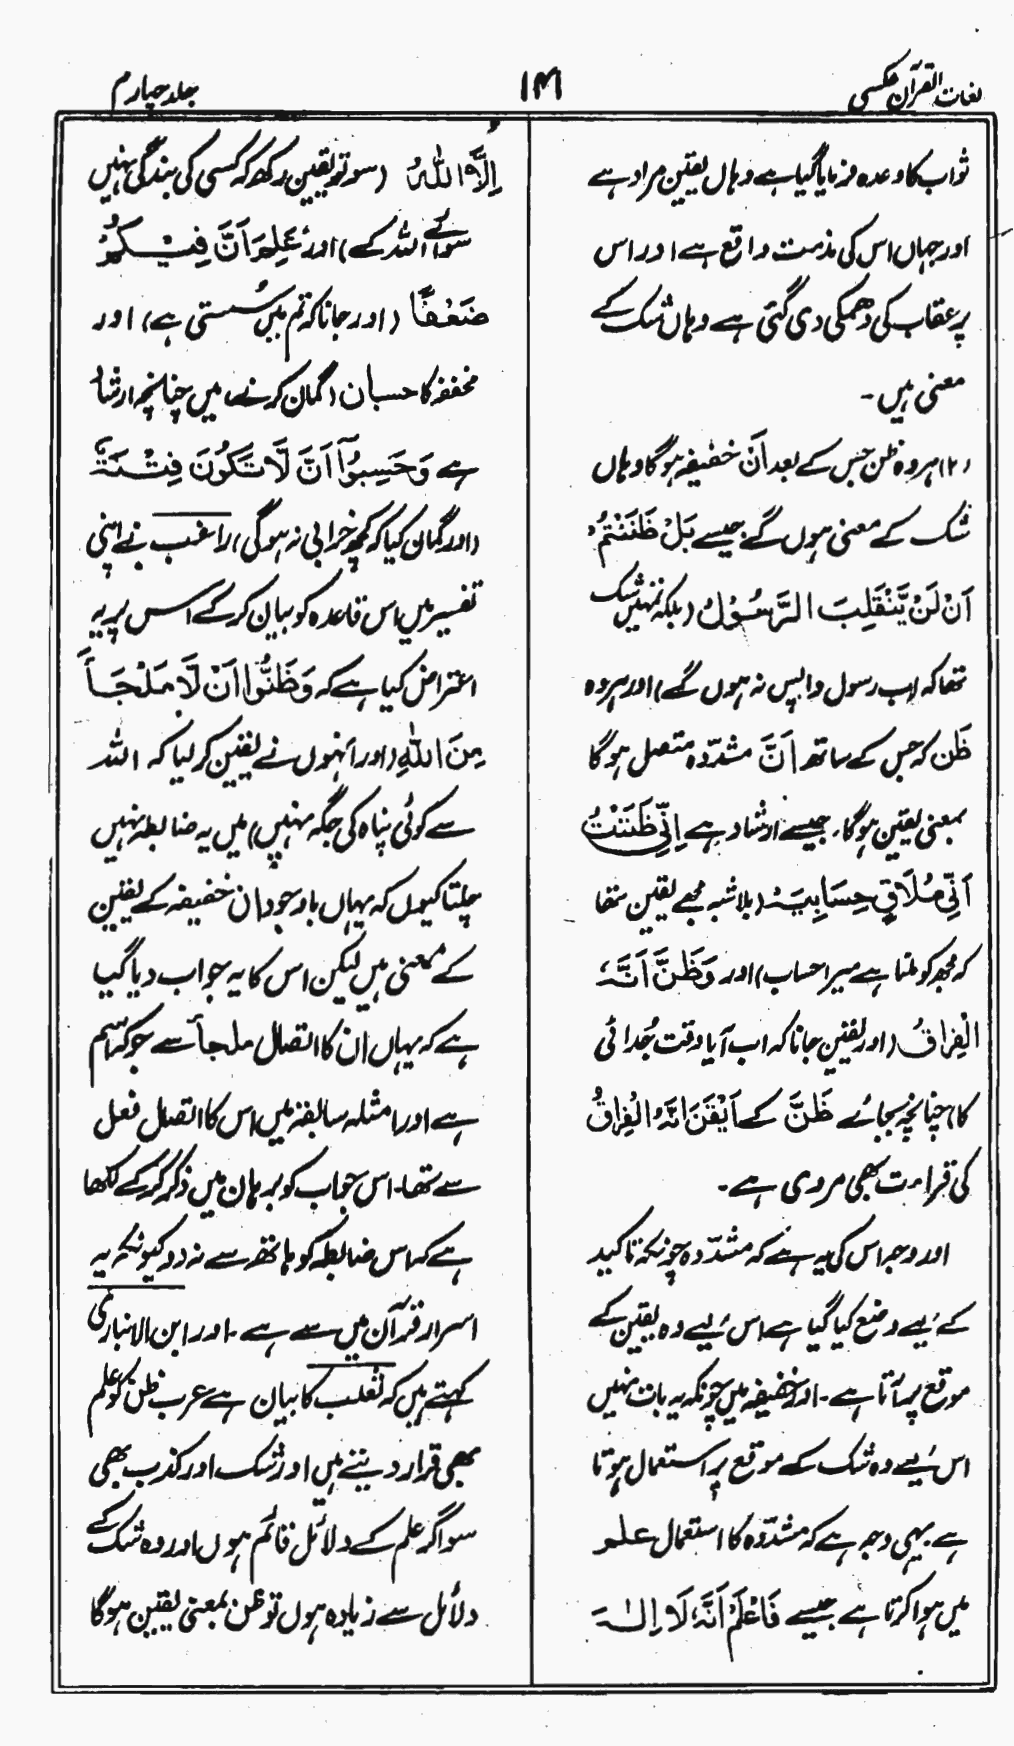 لغات القرآن عکسی
۱۴۱
جلد چہارم
ثواب کا وعدہ فرمایا گیا ہے وہاں یقین مراد ہے
اور جہاں اس کی مذمت واقع ہے اور اس
پر عقاب کی دھمکی دی گئی ہے وہاں شک کے
معنی ہیں۔
(۲) ہر وہ ظن جس کے بعد اَنْ خفیفہ ہوگا وہاں
شک کے معنی ہوں گے جیسے بَلْ ظَنَنْتُمْ
اَنْ لَنْ یَّنْقَلِبَ الرَّسُوْلُ (بلکہ تمہیں شک
تھا کہ اب رسول واپس نہ ہوں گے) اور ہر وہ
ظن کہ جس کے ساتھ اَنَّ مشدّدہ متصل ہوگا
بمعنی یقین ہوگا، جیسے ارشاد ہے اِنِّی ظَنَنْتُ
اَنِّی مُلَاقٍ حِسَابِیَہْ (بلاشبہ مجھے یقین تھا
کہ مجھ کو ملنا ہے میرا حساب) اور وَظَنَّ اَنَّہُ
الْفِرَاقُ (اور یقین جانا کہ اب آیا وقت جُدائی
کا) چنانچہ بجائے ظَنَّ کے اَیْقَنَ اَنَّہُ الْفِرَاقُ
کی قراءت بھی مروی ہے۔
اور وجہ اس کی یہ ہے کہ مشدّدہ چونکہ تاکید
کے لیے وضع کیا گیا ہے اس لیے وہ یقین کے
موقع پر آتا ہے۔ اور خفیفہ میں چونکہ یہ بات نہیں
اس لیے وہ شک کے موقع پر استعمال ہوتا
ہے یہی وجہ ہے کہ مشدّدہ کا استعمال علم
میں ہوا کرتا ہے جیسے فَاعْلَمْ اَنَّہُ لَا اِلٰہَ
اِلَّا اللّٰہُ (سو تو یقین رکھ کہ کسی کی بندگی نہیں
سوائے اللہ کے) اور عَلِمَ اَنَّ فِیْکُمْ
ضَعْفًا (اور جانا کہ تم میں سُستی ہے) اور
مخففہ کا حسبان (گمان کرنے) میں چنانچہ ارشاد
ہے وَحَسِبُوْآ اَنْ لَّا تَکُوْنَ فِتْنَۃٌ
(اور گمان کیا کہ کچھ خرابی نہ ہوگی) راغب نے اپنی
تفسیر میں اس قاعدہ کو بیان کرکے اس پر یہ
اعتراض کیا ہے کہ وَظَنُّوْا اَنْ لَّا مَلْجَأَ
مِنَ اللّٰہِ (اور اُنہوں نے یقین کر لیا کہ اللہ
سے کوئی پناہ کی جگہ نہیں) میں یہ ضابطہ نہیں
چلتا کیوں کہ یہاں باوجود ان خفیفہ کے یقین
کے معنی ہیں لیکن اس کا یہ جواب دیا گیا
ہے کہ یہاں ان کا اتصال ملجأ سے جو کہ اسم
ہے اور امثلہ سابقہ میں اس کا اتصال فعل
سے تھا۔ اس جواب کو برہان میں ذکر کرکے لکھا
ہے کہ اس ضابطہ کو ہاتھ سے نہ دو کیونکہ یہ
اسرار قرآن میں سے ہے۔ اور ابن الانباری
کہتے ہیں کہ ثعلب کا بیان ہے عرب ظن کو علم
بھی قرار دیتے ہیں اور شک اور کذب بھی
سو اگر علم کے دلائل قائم ہوں اور وہ شک کے
دلائل سے زیادہ ہوں تو ظن بمعنی یقین ہوگا